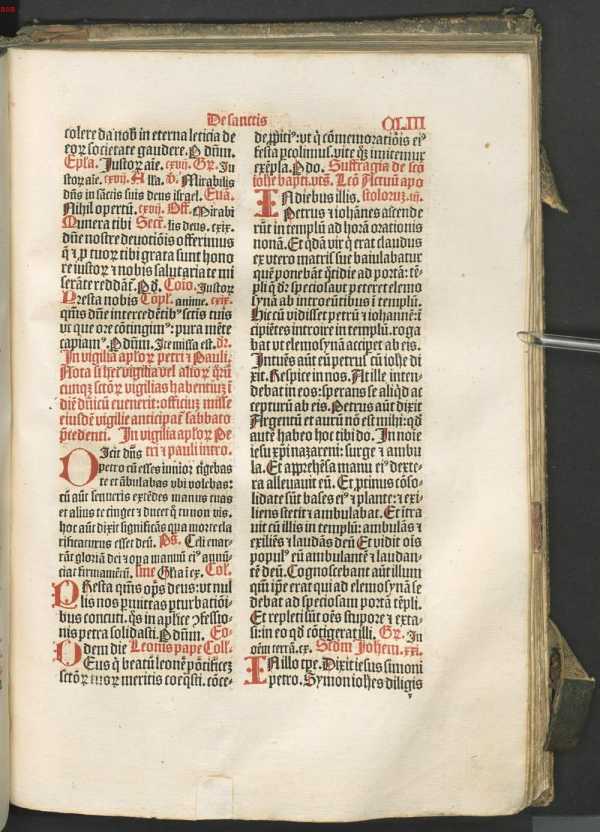 De sanctis
CLIII
colere da nob̄ in eterna leticia de
eoꝝ societate gaudere. P dūm.
Ep̄la. Iustoꝝ aīe. cxvij. Gr̄. Iu
stoꝝ aīe. cxvij. Alla. v̄. Mirabilis
dūs in sāctis suis deus isrl̄ael. Euā.
Nihil opertū. cxvij. Off. Mirabi
Munera tibi Secr̄. lis deus. cxix.
dn̄e nostre deuotiōis offerimus
q̄ ⁊ p̱ tuoꝝ tibi grata sunt hono
re iustoꝝ ⁊ nobis salutaria te mi
serāte reddāt̄. P d̄. Cōio. Iustoꝝ
Presta nobis Copl̄. anime. cxix.
qūs dn̄e intercedētibꝰ sctīs tuis
vt que ore cōtingimꝰ: pura mēte
capiamꝰ. P dn̄um. Ite missa est. dr̄.
In vigilia apl̄oꝝ petri ⁊ Pauli.
Nota si hec vigilia vel alioꝝ q̄rū
cunqꝫ sctōꝝ vigilias habentiuꝫ ī
diē dn̄icū euenerit: officiuꝫ misse
eiusdē vigilie anticipat̄ sabbato
p̄cedenti. In vigilia apl̄oꝝ Pe
Dicit dn̄s tri ⁊ pauli intro.
petro cū esses iunior cīgebas
te et ābulabas vbi volebas:
cū aūt senueris extēdes manus tuas
et alius te cinget ⁊ ducet q̄ tu non vis.
hoc aūt dixit significās qua morte cla
rificaturus esset deū. Ps. Celi enar-
rāt gloriā dei ⁊ opa manuū eiꝰ annū-
ciat firmamētū. sine Gl̄ia ī ex. Col̄.
Presta qūs op̄s deus: vt nul
lis nos p̱mittas p̱turbatiōi-
bus concuti. q̄s in apl̄ice ꝯfessio-
nis petra solidasti. P dn̄um. Eo-
dem die Leonis pape Coll̄.
Deus q̄ beatū leonē pōtificeꝫ
sctōꝝ tuoꝝ meritis coeq̄sti. cōce-
de p̱pitiꝰ: vt q̄ cōmemoratiōis eiꝰ
festa p̱colimus. vite qꝫ imitemur
exēpla. P do. Suffragia de scō
iohē bapti. vts. Lc̄o Actuū apo
In diebus illis. stoloruꝫ. iij.
Petrus ⁊ iohānes ascende
rūt in templū ad horā orationis
nonā. Et q̄dā vir q̄ erat claudus
ex vtero matris sue baiulabatur
quē ponebāt q̄tidie ad portā: tē-
pli q̄ dr̄ speciosa vt peteret elemo
synā ab introeūtibus ī templū.
Hic cū vidisset petrū ⁊ iohannē: ī
cipiētes introire in templū. roga
bat vt elemosynā accip̱et ab eis.
Intuēs aūt eū petrꝰ cū iohē di
xit. Respice in nos. At ille inten-
debat in eos: sperans se aliq̄d ac
cepturū ab eis. Petrus aūt dixit
Argentū et aurū nō est mihi: qd̄
autē habeo hoc tibi do. In noīe
iesu xp̄i nazareni: surge ⁊ ambu
la. Et apprehēsa manu eiꝰ dexte-
ra alleuauit eū. Et p̱tinus cōso-
lidate sūt bases eiꝰ ⁊ plante: ⁊ exi-
liens stetit ⁊ ambulabat. Et ītra
uit cū illis in templū: ambulās ⁊
exiliēs ⁊ laudās deū Et vidit oīs
populꝰ eū ambulantē ⁊ laudan-
tē deū. Cognoscebant aūt illum
qm̄ ip̄e erat qui ad elemosynā se
debat ad speciosam portā tēpli.
Et repleti sūt oēs stupore ⁊ exta-
si: in eo qd̄ cōtigerat illi. Gr̄. In
oēm terrā. cx. Scdm̄ Johem̄. xxi.
In illo tp̄e. Dixit iesus simoni
petro. Symon iohēs diligis
v